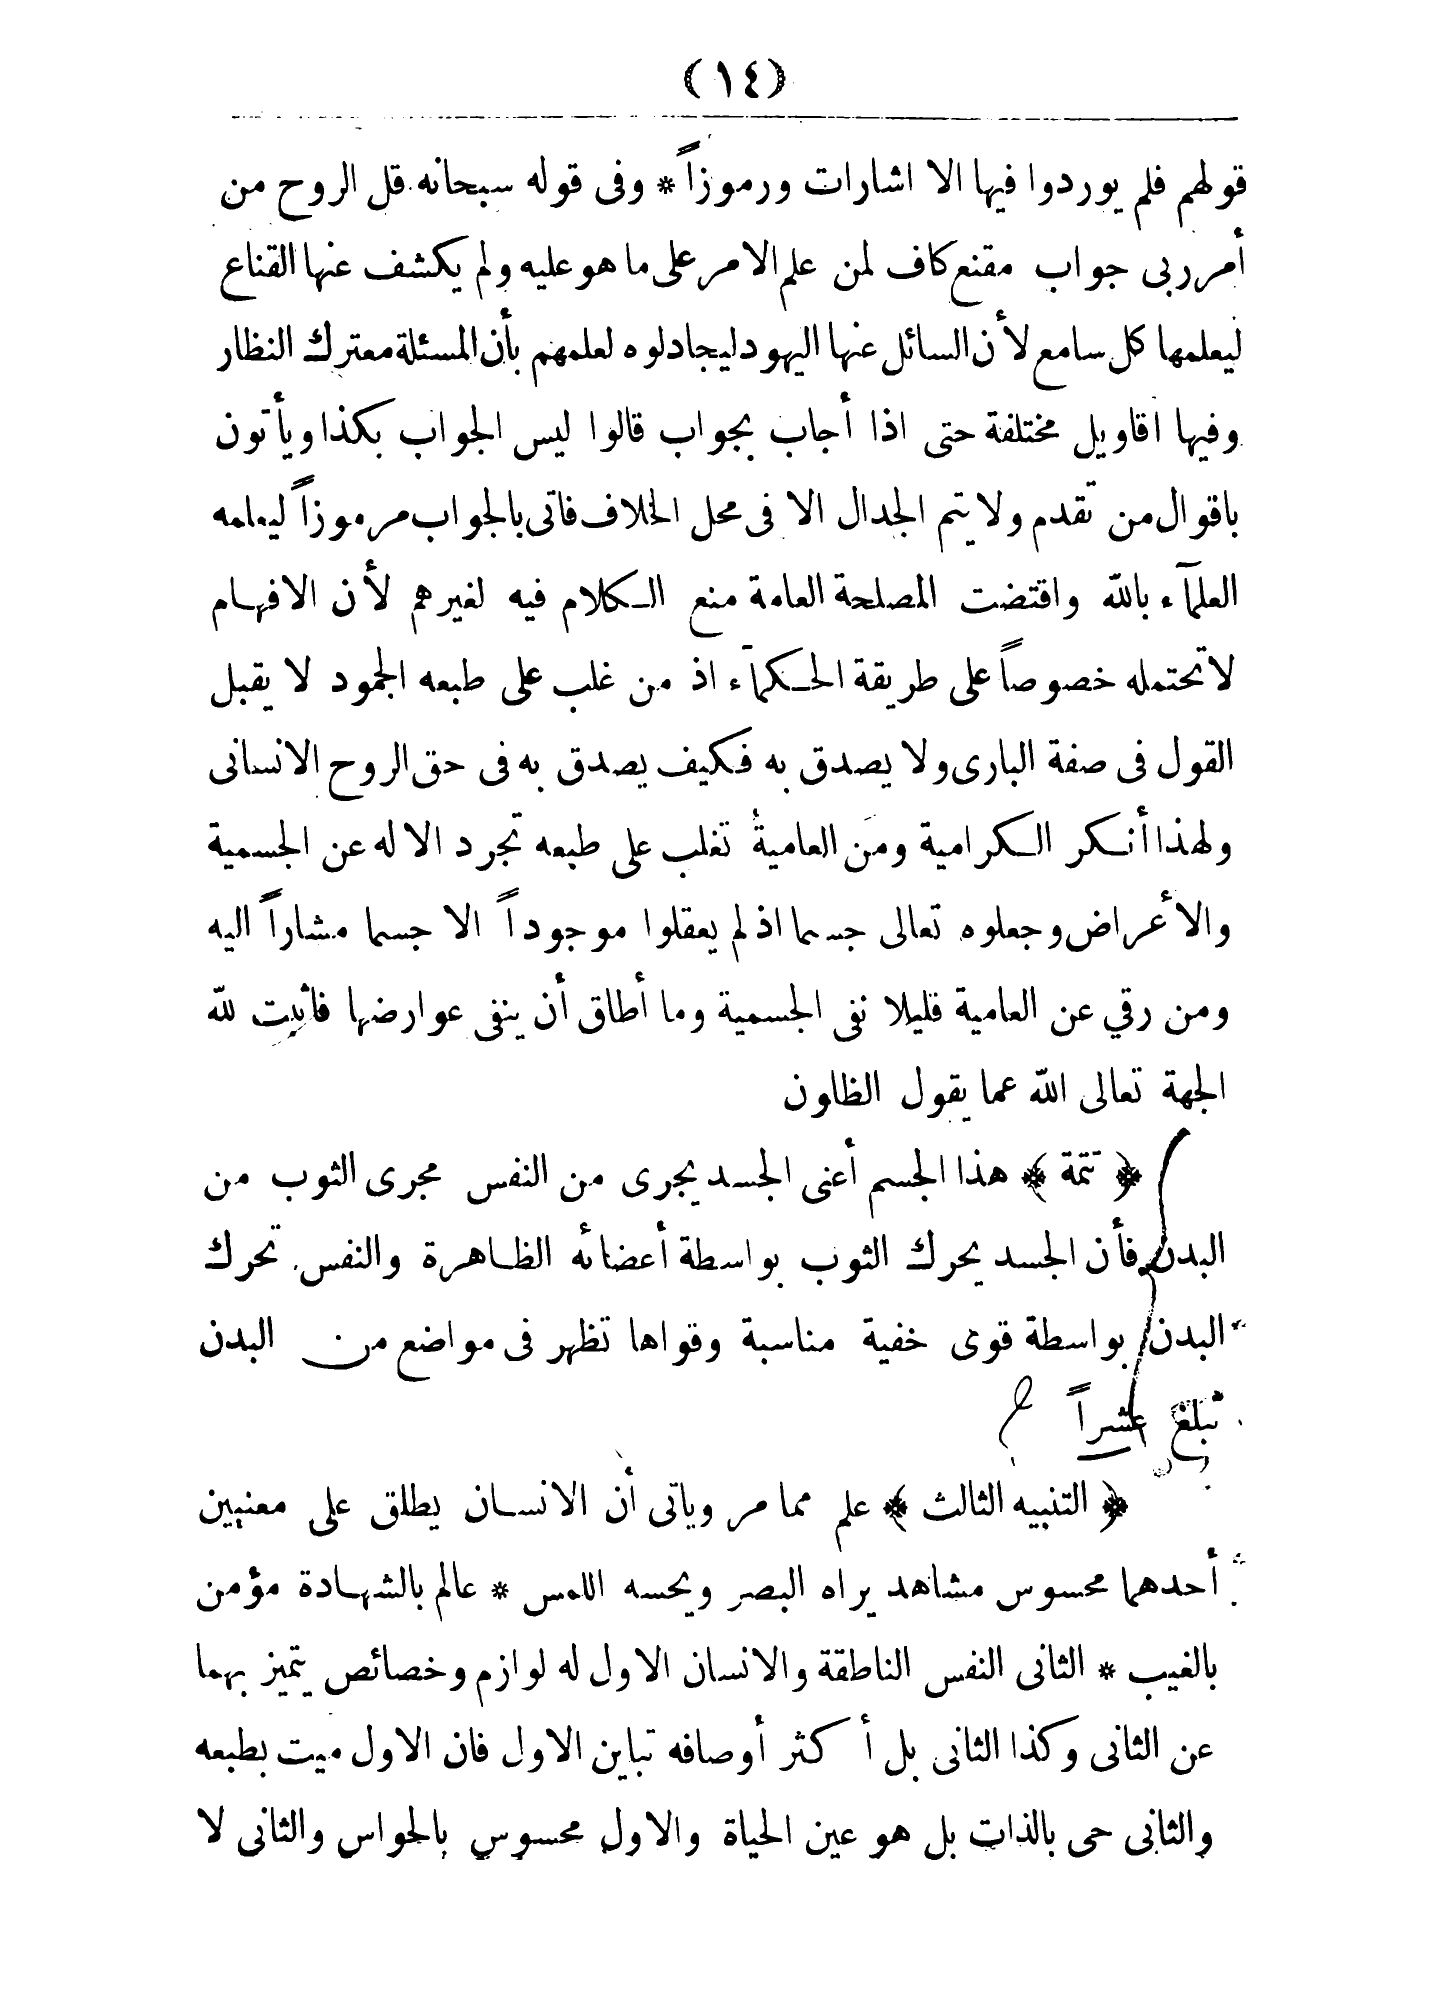 (١٤)
قولهم فلم يوردوا فيها الا اشارات ورموزاً * وفى قوله سبحانه قل الروح من
أمر ربى جواب مقنع كاف لمن علم الامر على ما هو عليه ولم يكشف عنها القناع
ليعلمها كل سامع لأن السائل عنها اليهود ليجادلوه لعلمهم بأن المسئلة معترك النظار
وفيها اقاويل مختلفة حتى اذا أجاب بجواب قالوا ليس الجواب بكذا ويأتون
باقوال من تقدم ولا يتم الجدال الا فى محل الخلاف فاتى بالجواب مرموزاً ليعلمه
العلمآء بالله واقتضت المصلحة العامة منع الـكلام فيه لغيرهم لأن الافهـام
لا تحتمله خصوصاً على طريقة الحـكمآء اذ من غلب على طبعه الجمود لا يقبل
القول فى صفة البارى ولا يصدق به فـكيف يصدق به فى حق الروح الانسانى
ولهذا أنـكر الـكرامية ومَن العاميةُ تغلب على طبعه تجرد الاله عن الجسمية
والأعراض وجعلوه تعالى جسما اذ لم يعقلوا موجوداً الا جسما مشاراً اليه
ومن رقي عن العامية قليلا نفى الجسمية وما أطاق أن ينفى عوارضها فاثبت لله
الجهة تعالى الله عما يقول الظاون
﴿ تتمة ﴾ هذا الجسم أعنى الجسد يجرى من النفس مجرى الثوب من
البدن فأن الجسد يحرك الثوب بواسطة أعضائه الظـاهرة والنفس تحرك
البدن بواسطة قوى خفية مناسبة وقواها تظهر فى مواضع من البدن
تبلغ عشراً
﴿ التنبيه الثالث ﴾ علم مما مر وياتى أن الانسـان يطلق على معنيين
أحدهما محسوس مشاهد يراه البصر ويحسه اللمس * عالم بالشهـادة مؤمن
بالغيب * الثانى النفس الناطقة والانسان الاول له لوازم وخصائص يتميز بهما
عن الثانى وكذا الثانى بل أكثر أوصافه تباين الاول فان الاول ميت بطبعه
والثانى حى بالذات بل هو عين الحياة والاول محسوس بالحواس والثانى لا